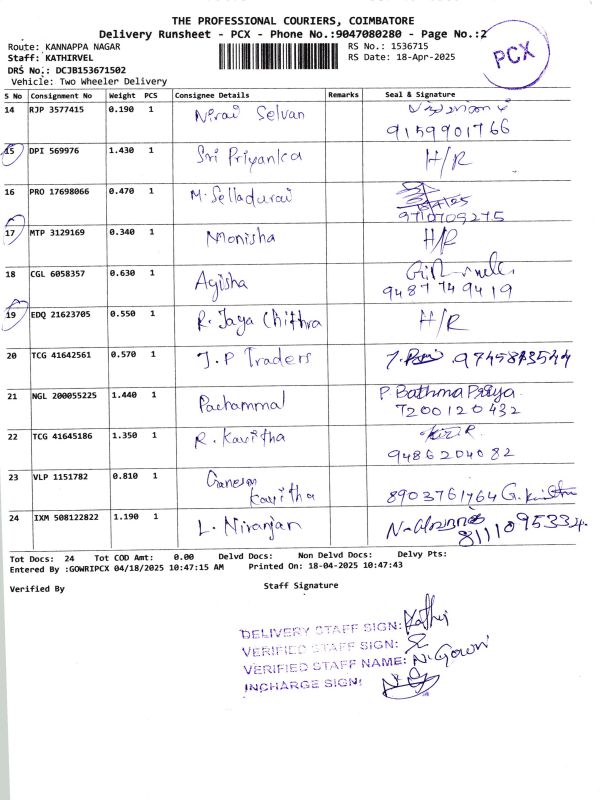 THE PROFESSIONAL COURIERS, COIMBATORE
Delivery Runsheet - PCX - Phone No.:9047080280 - Page No.:2
Route: KANNAPPA NAGAR RS No.: 1536715
Staff: KATHIRVEL RS Date: 18-Apr-2025
DRS No.: DCJB153671502
Vehicle: Two Wheeler Delivery
PCX
S No Consignment No Weight PCS Consignee Details Remarks Seal & Signature
14 RJP 3577415 0.190 1 Nirai Selvan
9159901766
15 DPI 569976 1.430 1 Sri Priyanka H/R
16 PRO 17698066 0.470 1 M. Selladurai
9710709275
17 MTP 3129169 0.340 1 Monisha H/R
18 CGL 6058357 0.630 1 Agisha
9487749419
19 EDQ 21623705 0.550 1 R. Jaya Chithra H/R
20 TCG 41642561 0.570 1 J.P Traders
21 NGL 200055225 1.440 1 Pachammal P. Bathma Priya
7200120432
22 TCG 41645186 1.350 1 R. Kavitha
9486204082
23 VLP 1151782 0.810 1 Ganesan
Kavitha 8903761764
24 IXM 508122822 1.190 1 L. Niranjan 8111095334
Tot Docs: 24 Tot COD Amt: 0.00 Delvd Docs: Non Delvd Docs: Delvy Pts:
Entered By :GOWRIPCX 04/18/2025 10:47:15 AM Printed On: 18-04-2025 10:47:43
Verified By Staff Signature
DELIVERY STAFF SIGN:
VERIFIED STAFF SIGN:
VERIFIED STAFF NAME: N. Gowri
INCHARGE SIGN: